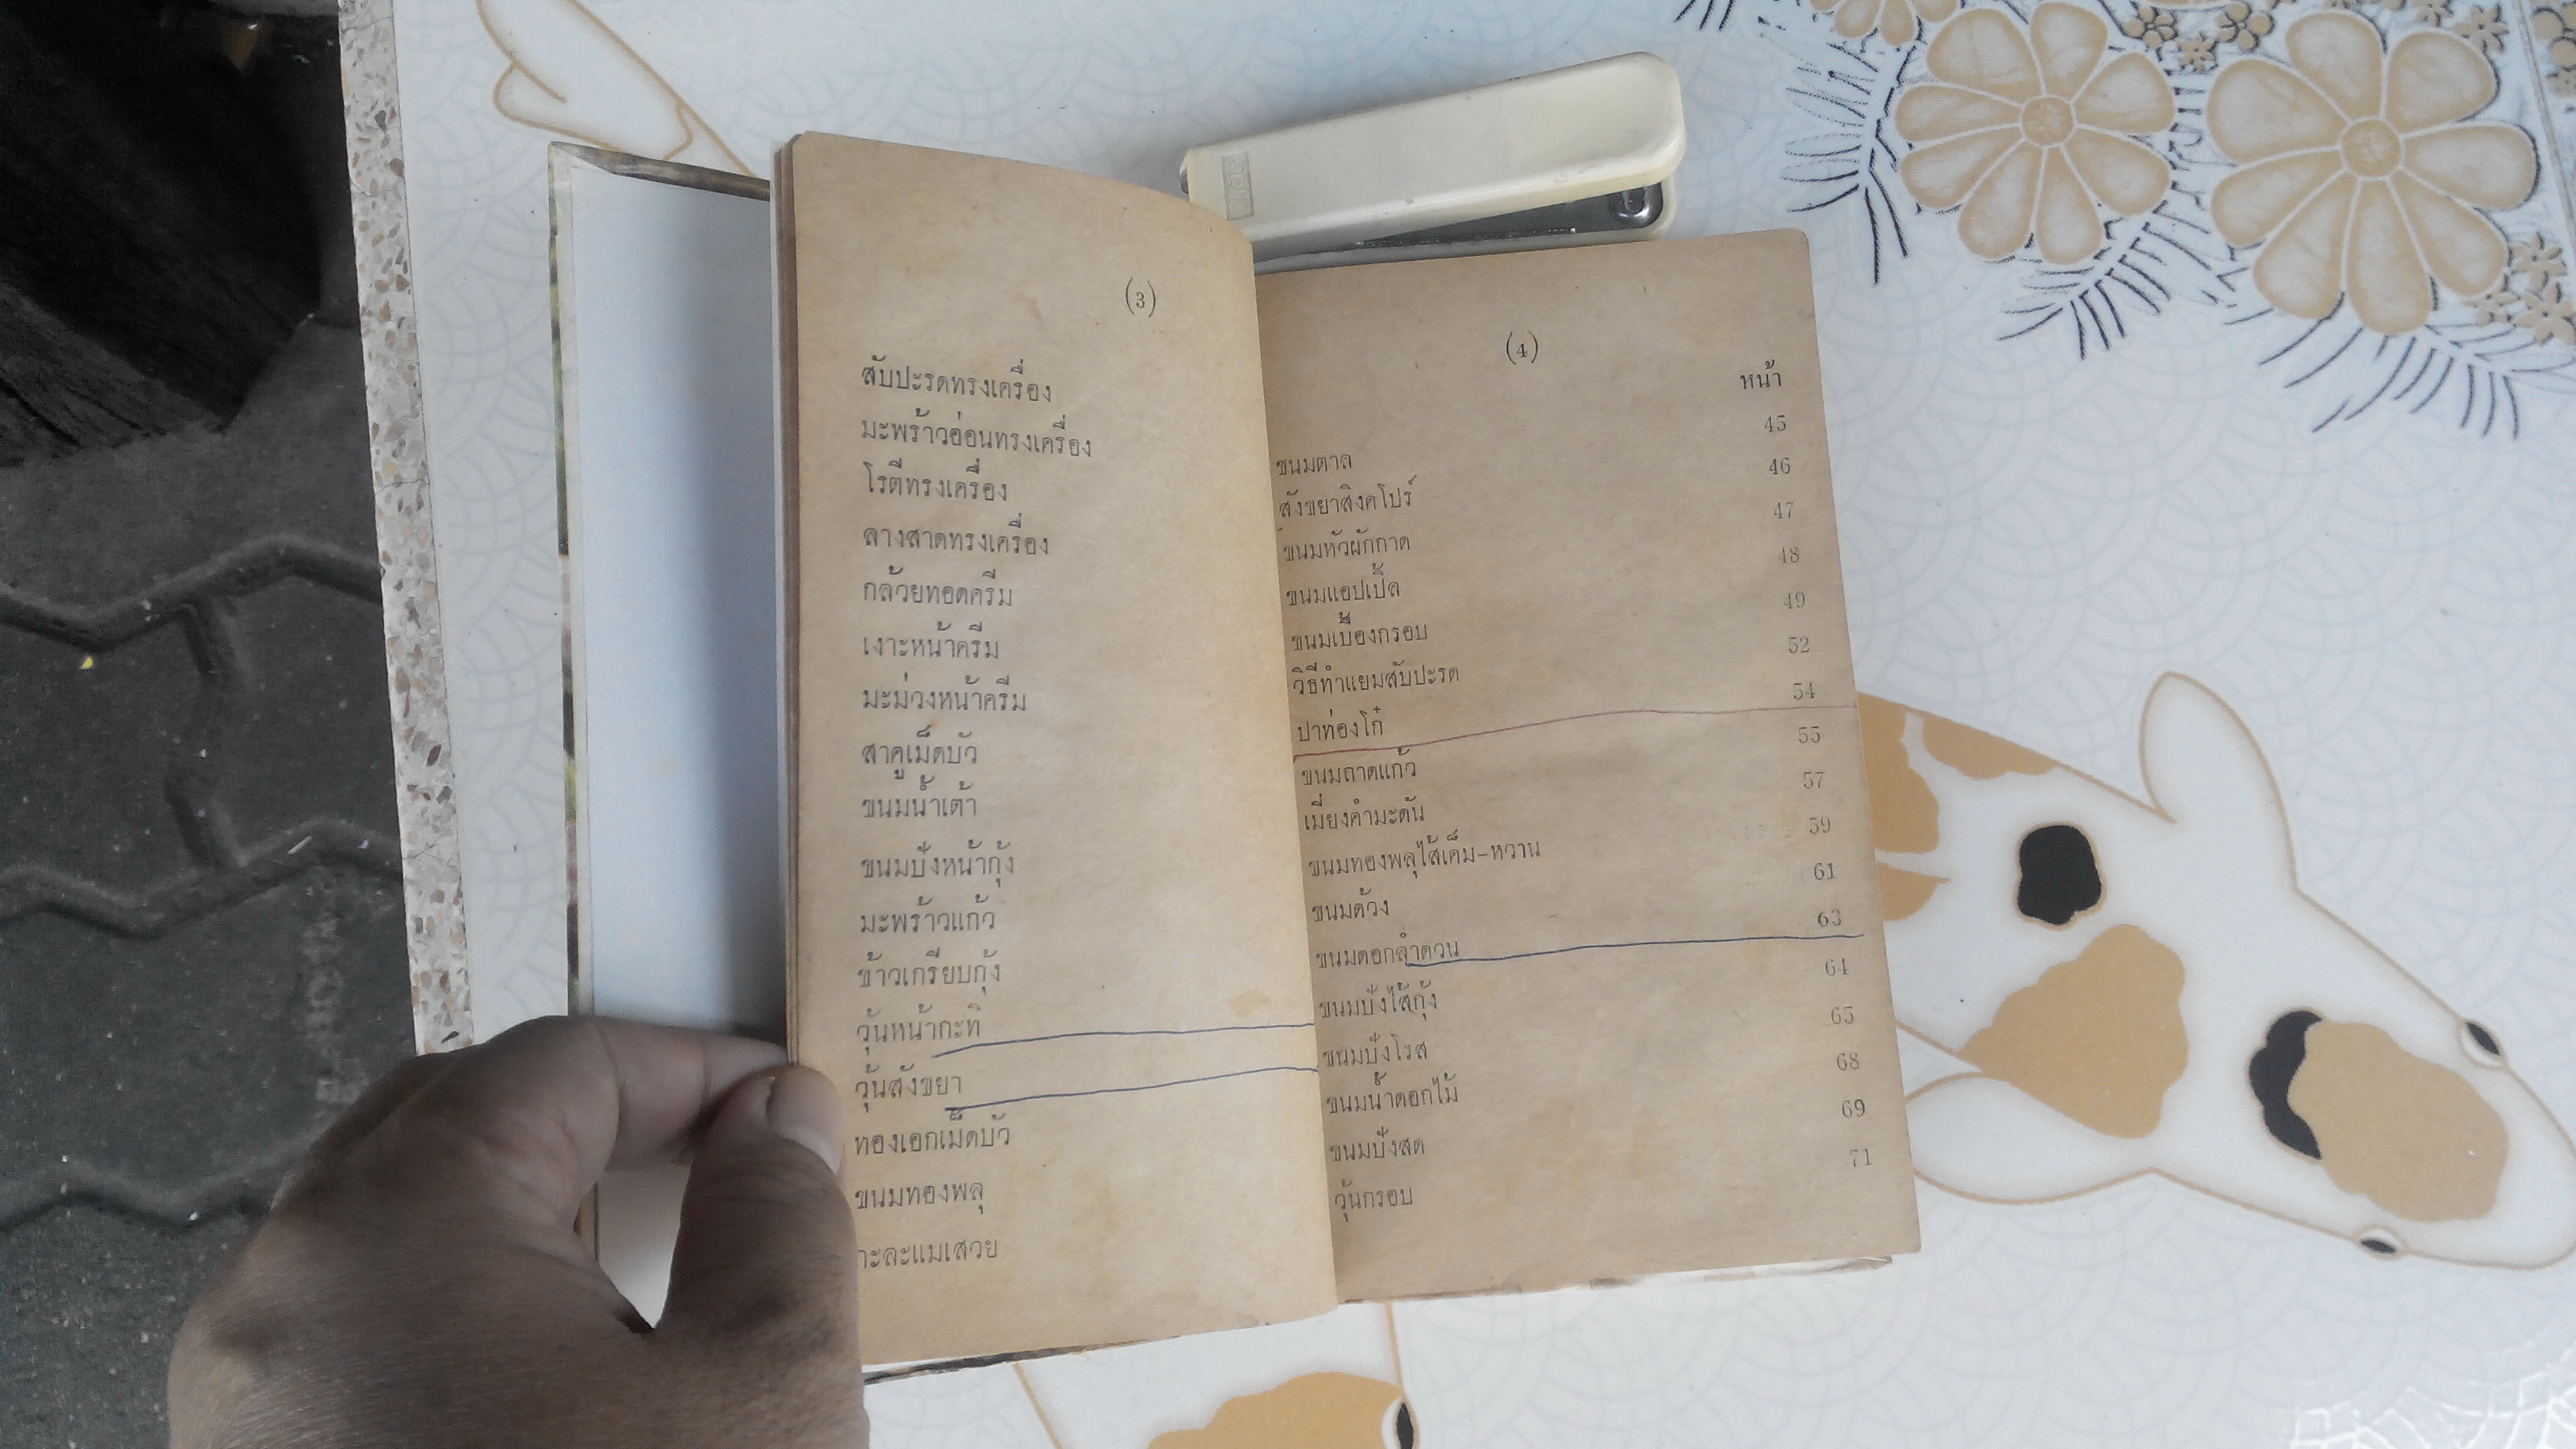 (3)
สับปะรดทรงเครื่อง
มะพร้าวอ่อนทรงเครื่อง
โรตีทรงเครื่อง
ลางสาดทรงเครื่อง
กล้วยทอดครีม
เงาะหน้าครีม
มะม่วงหน้าครีม
สาคูเม็ดบัว
ขนมน้ำเต้า
ขนมปังหน้ากุ้ง
มะพร้าวแก้ว
ข้าวเกรียบกุ้ง
วุ้นหน้ากะทิ
วุ้นสังขยา
ทองเอกเม็ดบัว
ขนมทองพลุ
กะละแมเสวย
(4)
หน้า
ขนมตาล 45
สังขยาสิงคโปร์ 46
ขนมหัวผักกาด 47
ขนมแอปเปิ้ล 48
ขนมเบื้องกรอบ 49
วิธีทำแยมสับปะรด 52
ปาท่องโก๋ 54
ขนมถาดแก้ว 55
เมี่ยงคำมะดัน 57
ขนมทองพลุไส้เค็ม-หวาน 59
ขนมด้วง 61
ขนมดอกลำดวน 63
ขนมปังไส้กุ้ง 64
ขนมปังโรส 65
ขนมน้ำดอกไม้ 68
ขนมปังสด 69
วุ้นกรอบ 71